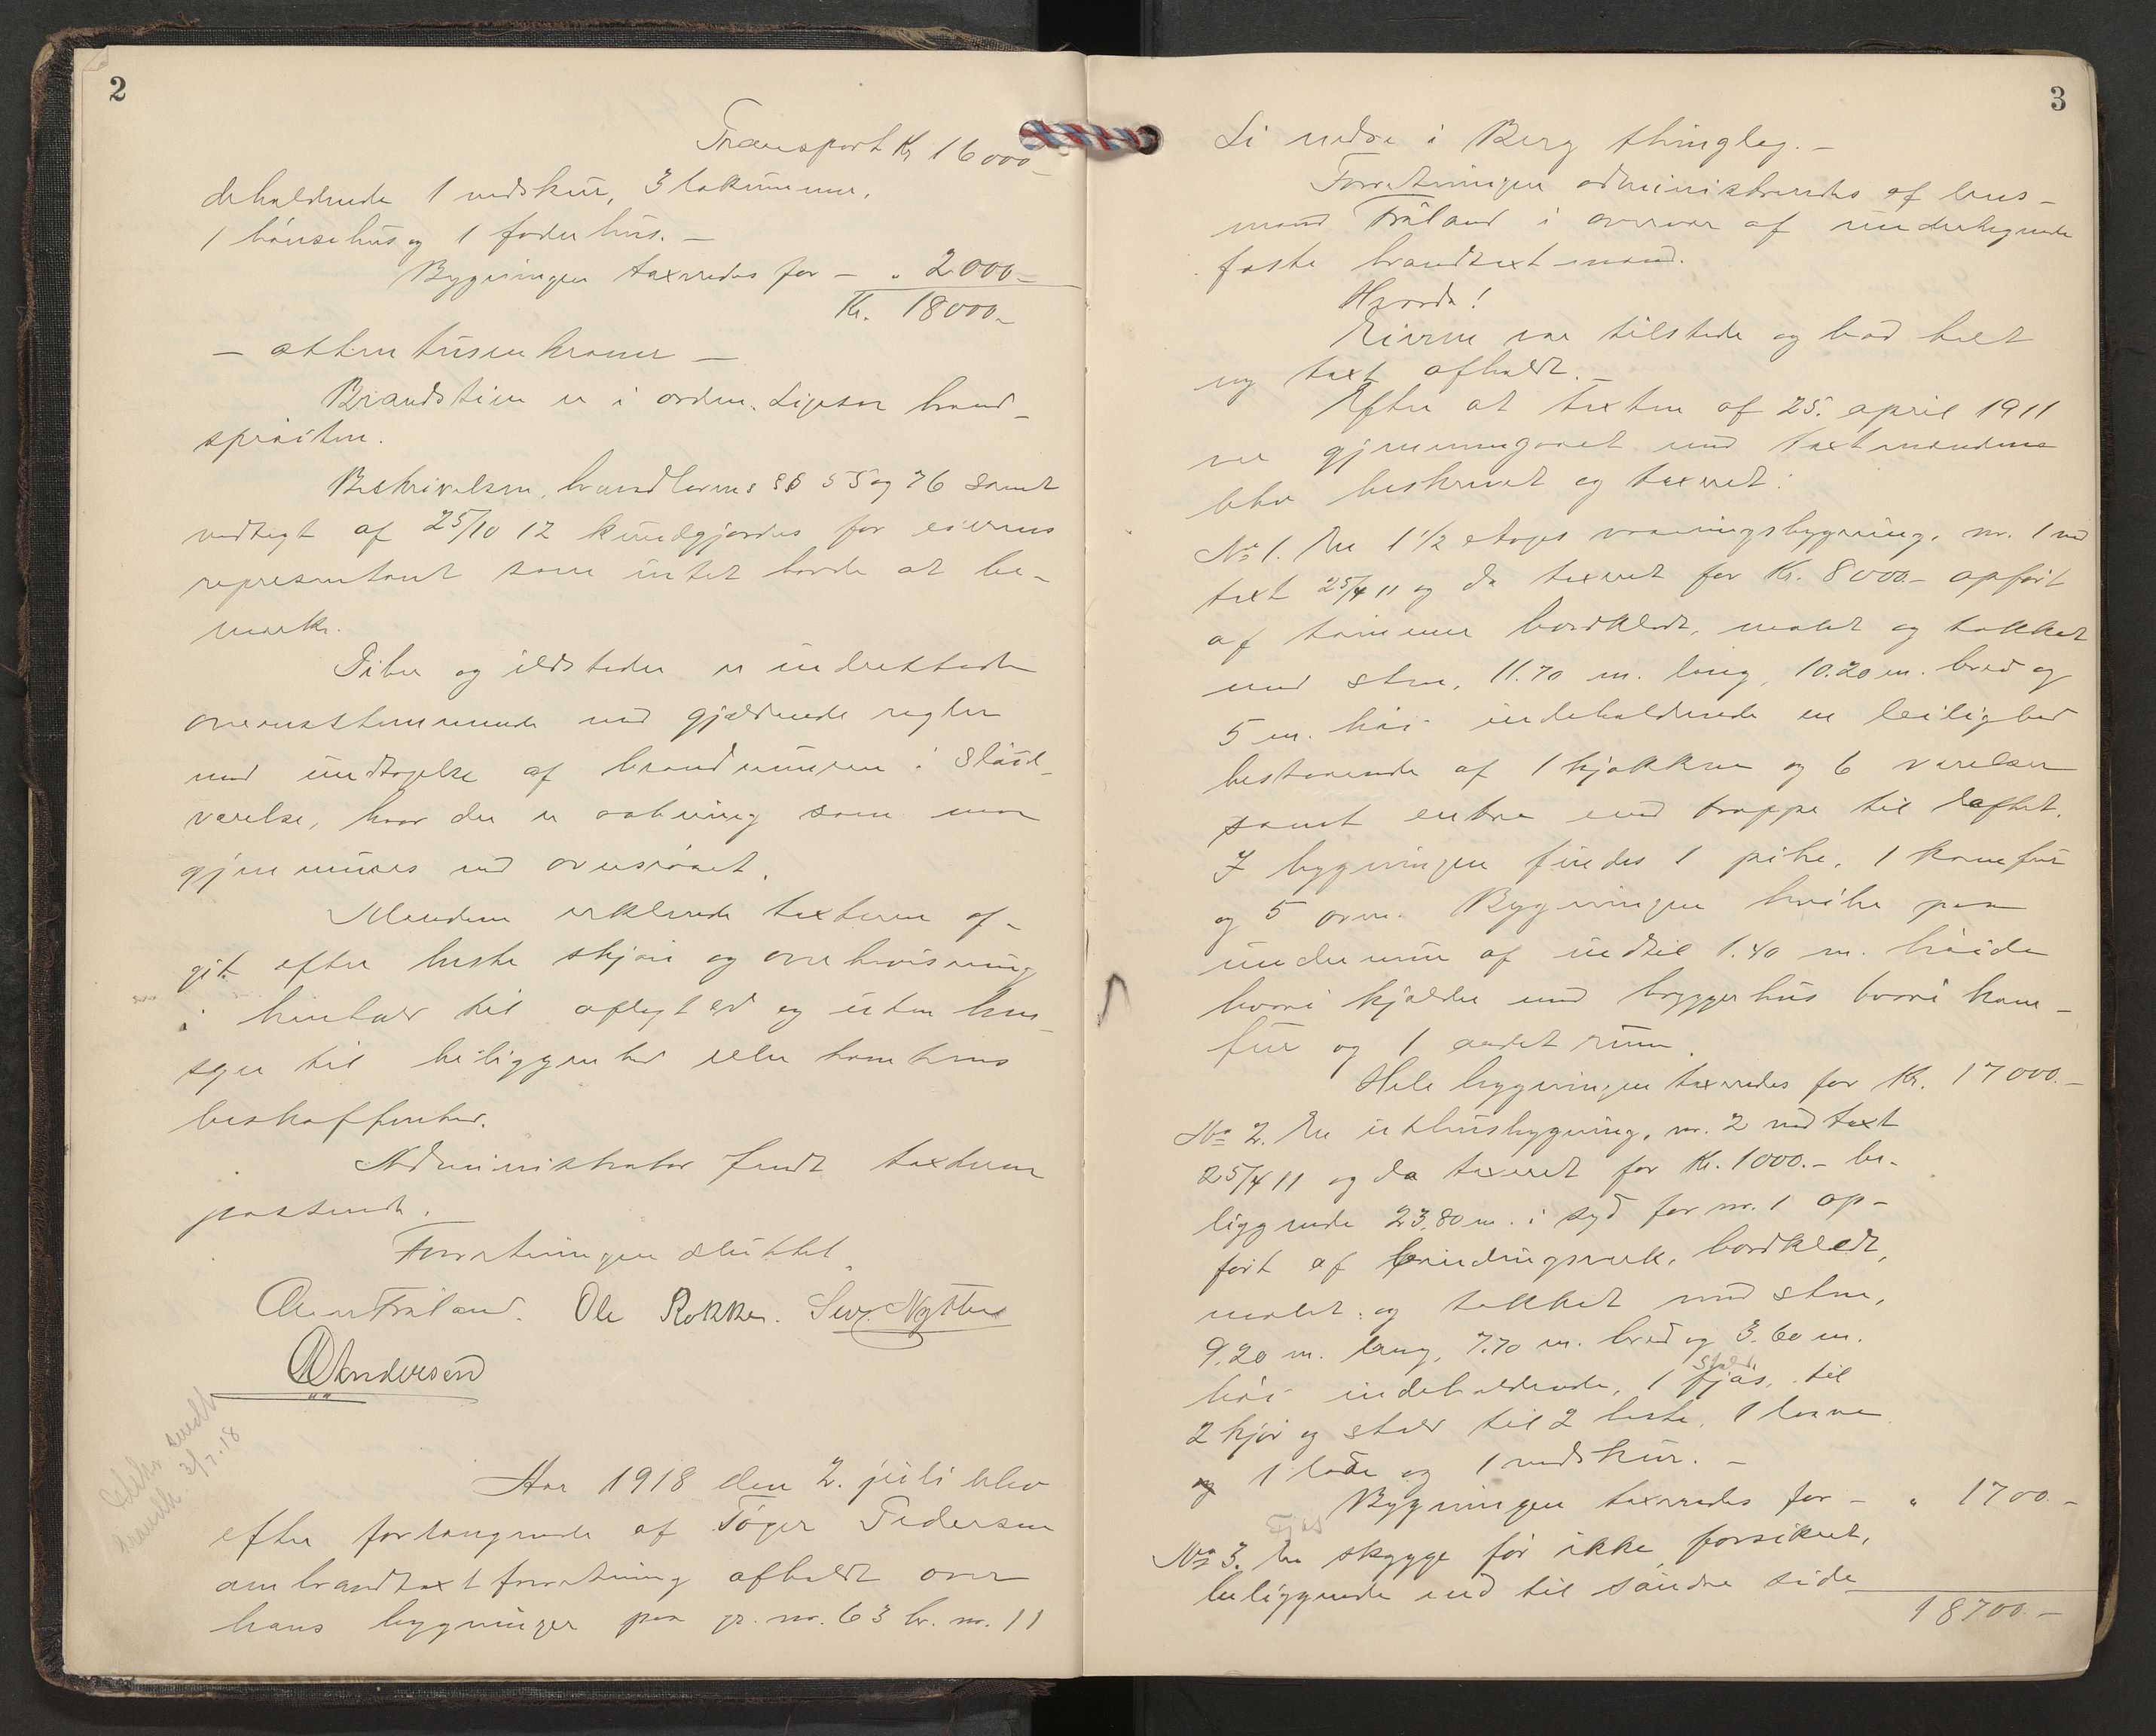 2
Transport Kr 16000-
deholdende 1 vedskur, 3 lokummer,
1 hönsehus og 1 foderhus. -
Bygningen taxeredes for - " 2000-
Kr. 18000-
- atten tusen kroner -
Brandstien er i orden. Ligesaa brand-
spröiten.
Beskrivelsen, brandlovens §§ 55 og 76 samt
vedtegt af 25/10 12 kundgjordes for eierens
representant som intet havde at be-
merke.
Piber og ildsteder er indrettede
overensstemmende med gjældende regler
med undtagelse af brandmuren i Slöid-
værelse, hvor der er aabning som maa
gjenmures ved ovnsröret.
Mændene erklærede taxterne af-
git efter bedste skjön og overbevisning
i henhold til aflagt ed og uten hen-
syn til beliggenhed eller tomtens
beskaffenhed.
Administrator fandt taxterne
passende.
Forretningen sluttet.
Fråland. Ole Rokke. Sev. Nygaard
Andersen
brandk. 3/7.18
Aar 1918 den 2. juli blev
efter forlangende af Töger Pedersen
en brandtaxtforretning afholdt over
hans bygninger paa gr. nr. 63 br. nr. 11
3
Li nedre i Berg thinglag. -
Forretningen administreredes af lens-
mand Fråland i overvær af undertegnede
faste brandtaxtmænd.
Hvorda!
Eieren var tilstede og bad helt
ny taxt afholdt. -
Efter at taxten af 25. april 1911
var gjennemgaaet med taxtmændene
blev beskrevet og taxeret:
No 1. En 1 1/2 etages vaaningsbygning, nr. 1 ved
taxt 25/4 11 og da taxeret for Kr. 8000.- opfört
af tömmer bordklædt, malet og tækket
med sten, 11.70 m. lang, 10.20 m. bred og
5 m. höi indeholdende en leilighed
bestaaende af 1 kjøkken og 6 værelser
samt entre med trappe til loftet.
I bygningen findes 1 pibe, 1 komfur
og 5 ovne. Bygningen hviler paa
undermur af indtil 1.40 m. höide
hvori kjælder med bryggerhus hvori kom-
fur og 1 andet rum.
Hele bygningen taxeredes for Kr. 17000.-
No 2. En uthusbygning, nr. 2 ved taxt
25/4 11 og da taxeret for Kr. 1000.- be-
liggende 23,80 m. i syd for nr. 1 op-
fört af bindingsverk, bordklædt,
malet og tækket med sten,
9.20 m. lang, 7.70 m. bred og 3.60 m.
stald
höi indeholdende, 1 fjøs, til
2 kjör og stald til 2 heste, 1 laave
og 1 lade og 1 vedskur. -
Bygningen taxeredes for - " 1700.-
Fjøs
No 3. En skygge för ikke forsikret,
beliggende ind til söndre side
18700.-